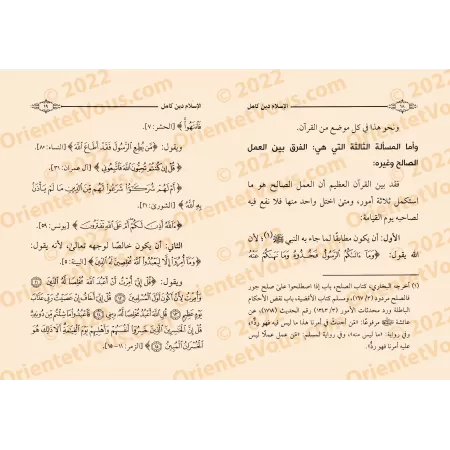 ١٨
الإسلام دين كامل
ونحو هذا في كل موضع من القرآن.
وأما المسألة الثالثة التي هي: الفرق بين العمل
الصالح وغيره:
فقد بين القرآن العظيم أن العمل الصالح هو ما
استكمل ثلاثة أمور، ومتى اختل واحد منها فلا نفع فيه
لصاحبه يوم القيامة:
الأول: أن يكون مطابقًا لما جاء به النبي ﷺ(١)؛ لأن
الله يقول: ﴿وَمَا آتَاكُمُ الرَّسُولُ فَخُذُوهُ وَمَا نَهَاكُمْ عَنْهُ
(١) أخرجه البخاري، كتاب الصلح، باب إذا اصطلحوا على صلح جور
فالصلح مردود (٣/ ١٦٧)، ومسلم كتاب الأقضية، باب نقض الأحكام
الباطلة ورد محدثات الأمور (٣/ ١٣٤٣) رقم الحديث (١٧١٨)، عن
عائشة ﷺ مرفوعًا: «من أحدث في أمرنا هذا ما ليس فيه فهو رد»،
وفي رواية: «ما ليس منه»، وفي رواية لمسلم: «من عمل عملًا ليس
عليه أمرنا فهو رد».
الإسلام دين كامل
١٩
فَانْتَهُوا﴾ [الحشر: ٧].
ويقول: ﴿مَنْ يُطِعِ الرَّسُولَ فَقَدْ أَطَاعَ اللَّهَ﴾ [النساء: ٨٠].
﴿قُلْ إِنْ كُنْتُمْ تُحِبُّونَ اللَّهَ فَاتَّبِعُونِي﴾ [آل عمران: ٣١].
﴿أَمْ لَهُمْ شُرَكَاءُ شَرَعُوا لَهُمْ مِنَ الدِّينِ مَا لَمْ يَأْذَنْ
بِهِ اللَّهُ﴾ [الشورى: ٢١].
﴿آللَّهُ أَذِنَ لَكُمْ أَمْ عَلَى اللَّهِ تَفْتَرُونَ﴾ [يونس: ٥٩].
الثاني: أن يكون خالصًا لوجهه تعالى؛ لأنه يقول:
﴿وَمَا أُمِرُوا إِلَّا لِيَعْبُدُوا اللَّهَ مُخْلِصِينَ لَهُ الدِّينَ﴾ [البينة: ٥].
ويقول: ﴿قُلْ إِنِّي أُمِرْتُ أَنْ أَعْبُدَ اللَّهَ مُخْلِصًا لَهُ الدِّينَ ۝١١
وَأُمِرْتُ لِأَنْ أَكُونَ أَوَّلَ الْمُسْلِمِينَ ۝١٢ قُلْ إِنِّي أَخَافُ إِنْ عَصَيْتُ رَبِّي عَذَابَ
يَوْمٍ عَظِيمٍ ۝١٣ قُلِ اللَّهَ أَعْبُدُ مُخْلِصًا لَهُ دِينِي ۝١٤ فَاعْبُدُوا مَا شِئْتُمْ مِنْ دُونِهِ
قُلْ إِنَّ الْخَاسِرِينَ الَّذِينَ خَسِرُوا أَنْفُسَهُمْ وَأَهْلِيهِمْ يَوْمَ الْقِيَامَةِ أَلَا ذَلِكَ هُوَ
الْخُسْرَانُ الْمُبِينُ ۝١٥﴾ [الزمر: ١١-١٥].
OrientetVous.com © 2022